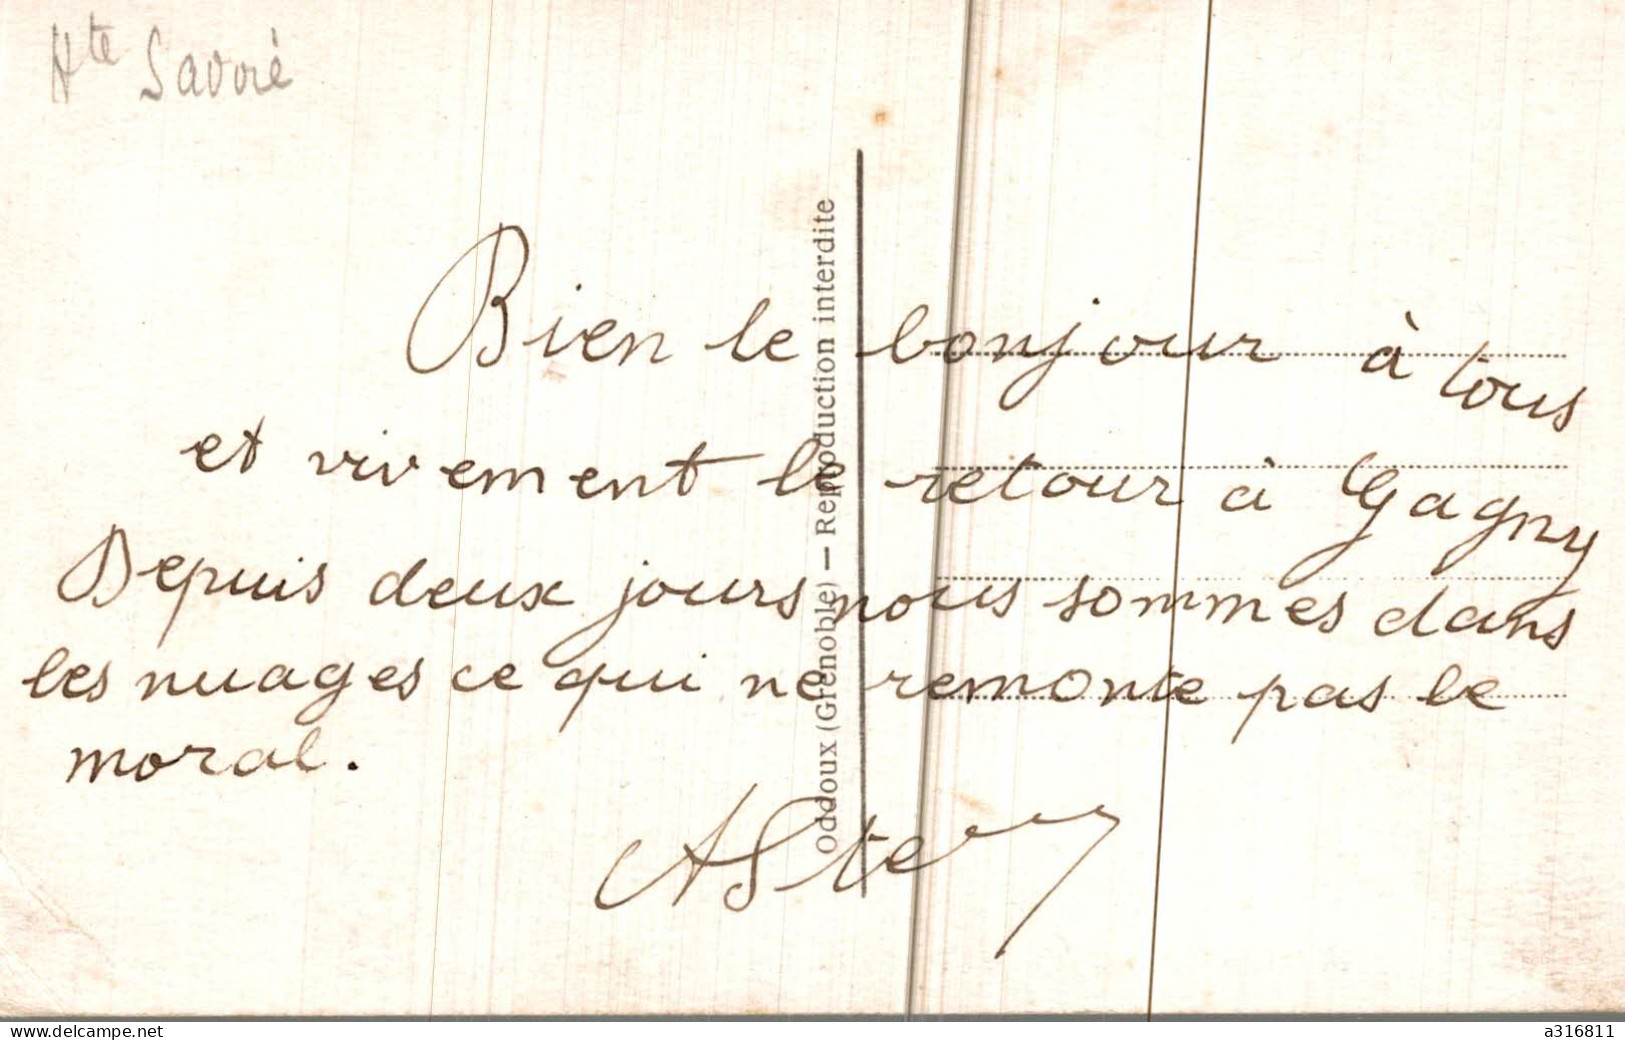 Hte Savoie
Bien le bonjour à tous
et vivement le retour à Gagny
Depuis deux jours nous sommes dans
les nuages ce qui ne remonte pas le
moral.
Oddoux (Grenoble) — Reproduction interdite
www.delcampe.net
a316811